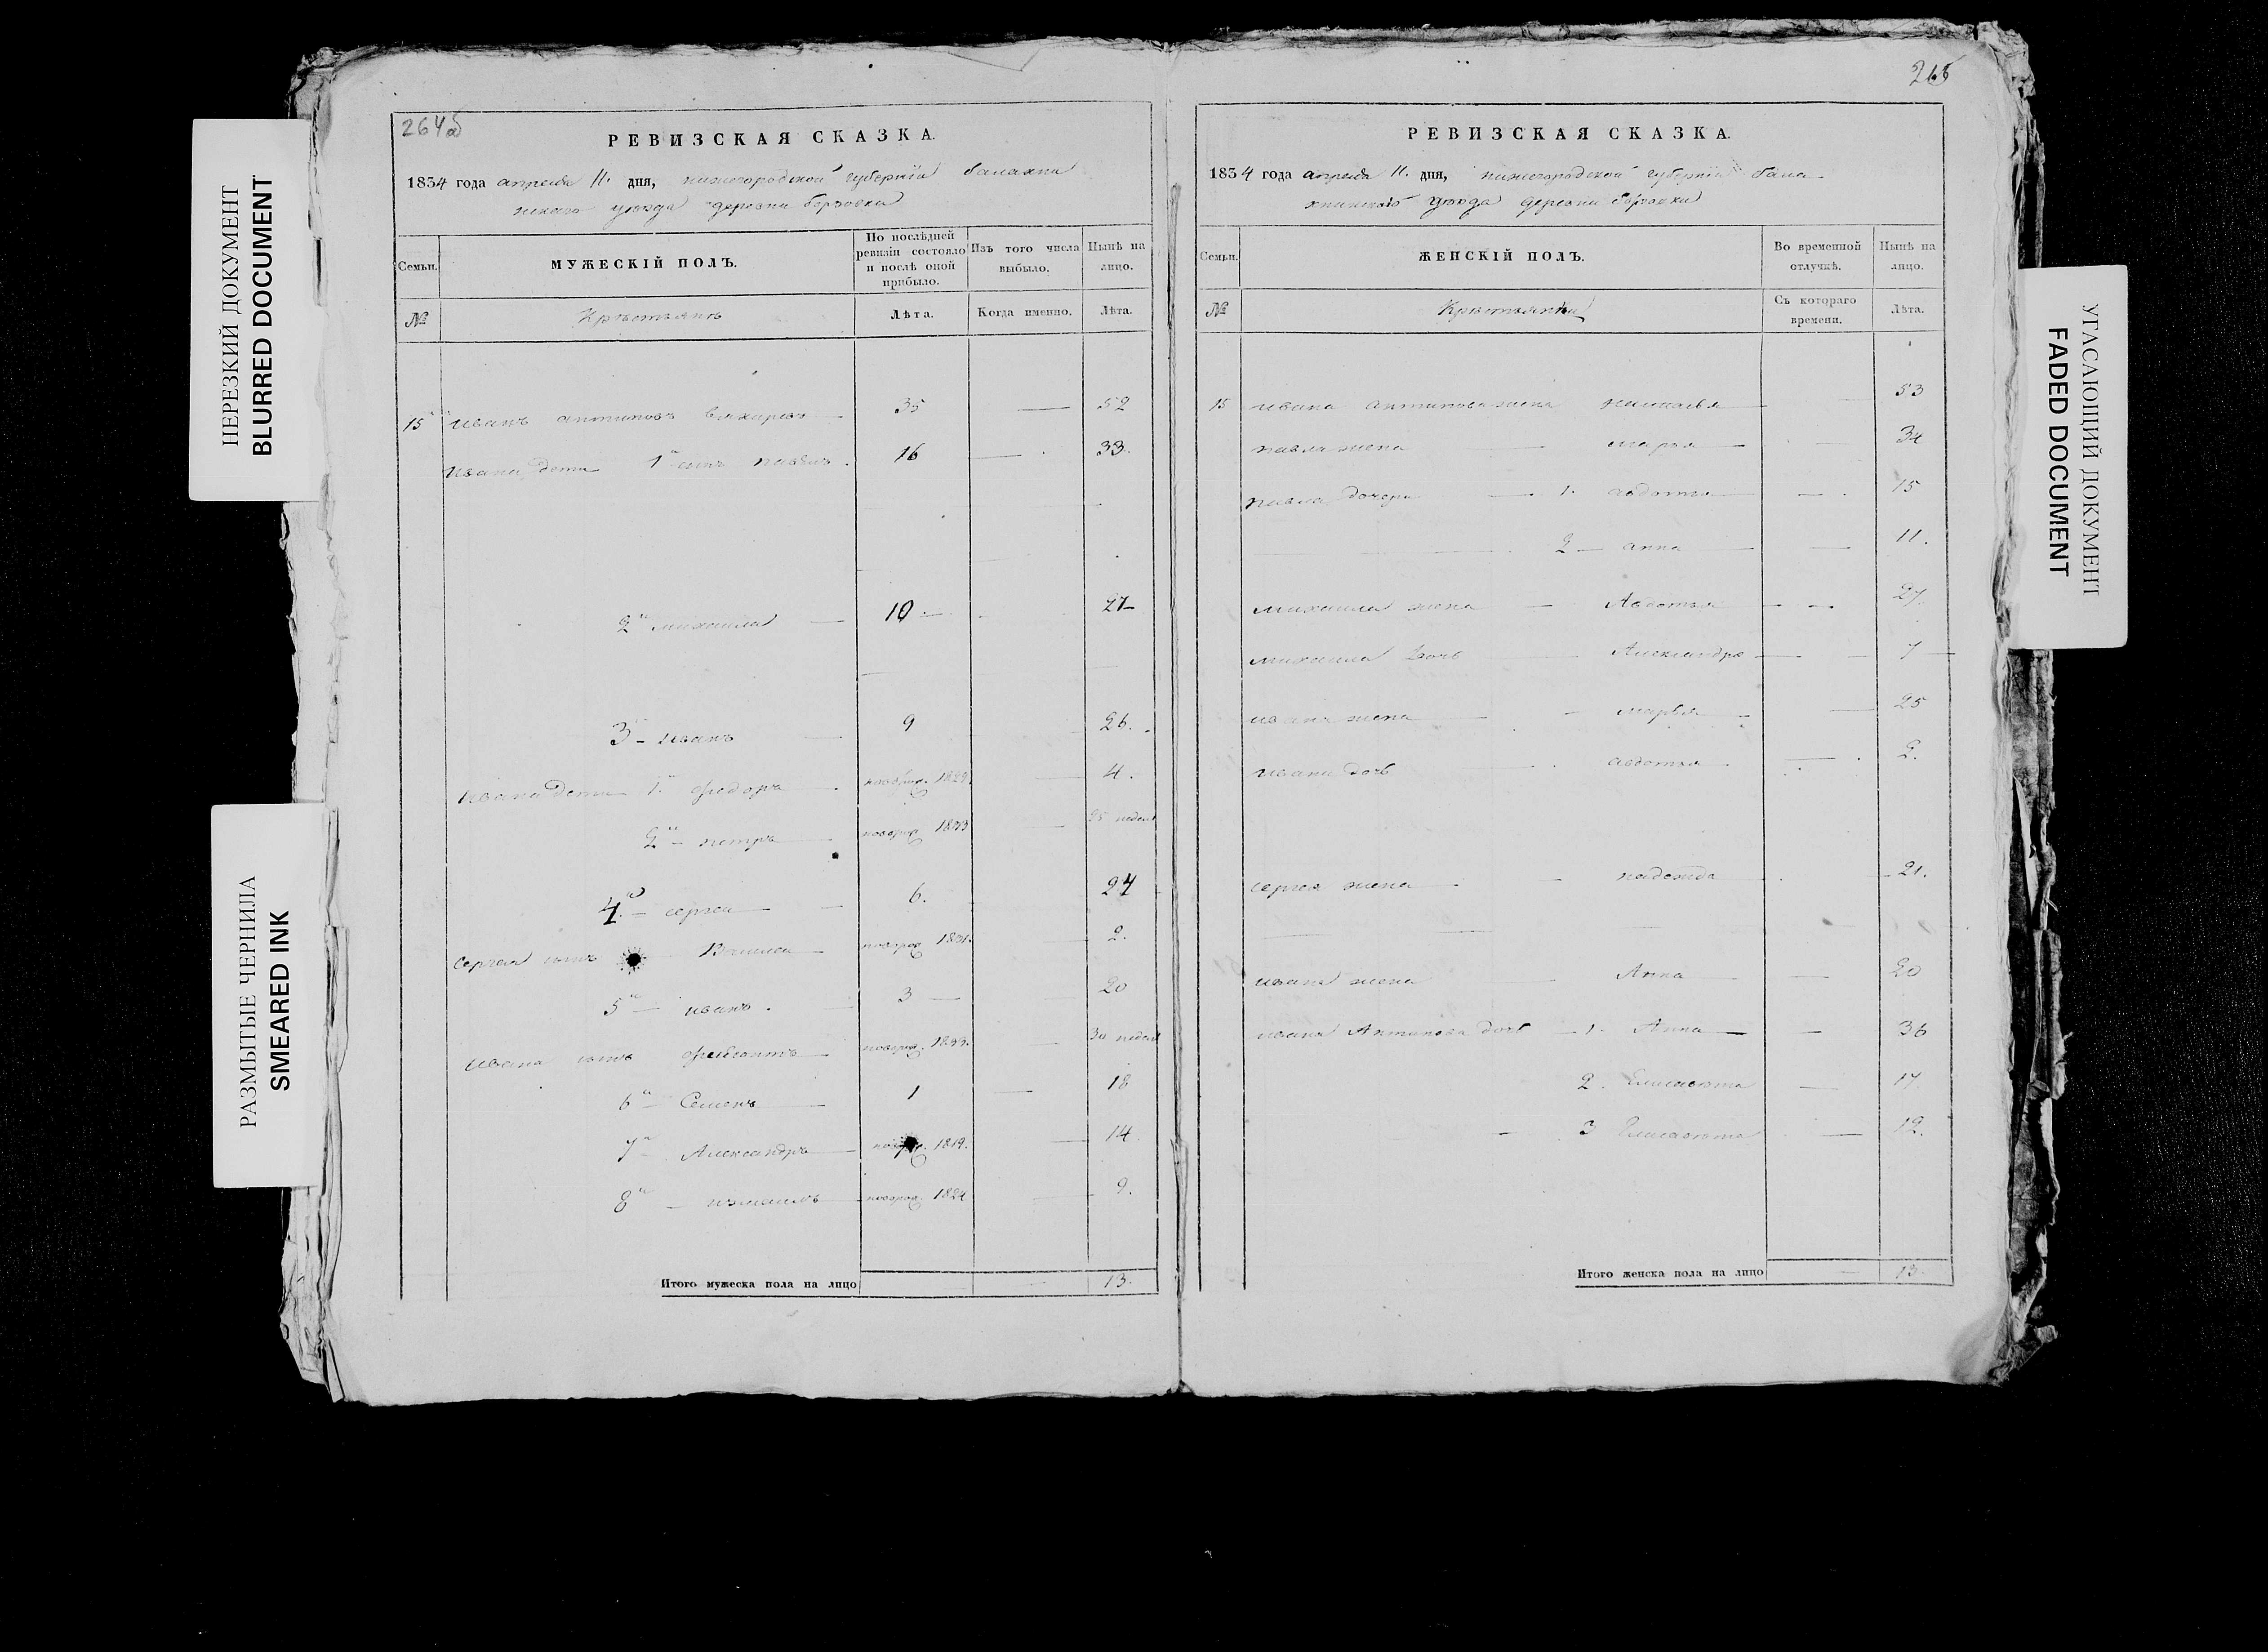 НЕРЕЗКИЙ ДОКУМЕНТ
BLURRED DOCUMENT
РАЗМЫТЫЕ ЧЕРНИЛА
SMEARED INK
264об
РЕВИЗСКАЯ СКАЗКА.
1834 года апреля 11. дня, нижегородской губернiи балахни
нского уезда деревни
Семьи.
МУЖЕСКIЙ ПОЛЪ.
По послѣдней ревизiи состояло и послѣ оной прибыло.
Изъ того числа выбыло.
Нынѣ на лицо.
№
Крестьянъ
Лѣта.
Когда именно.
Лѣта.
15 иванъ антиповъ вяхиревъ 35 — 52
ивана дети 1й сынъ павелъ 16 — 33.
2й михаила 10 — 27
3 иванъ 9 26.
ивана дети 1. федоръ новорож. 1829. 4.
2й петръ новорож. 1833 25 недель
4й сергей 6. 24
сергея сынъ новорож. 1831. 2.
5й иванъ. 3 — 20
ивана сынъ новорож. 1833. 30 недель
6й Семенъ 1 — 18
7 Александръ 1819. 14
8й новорож. 1824 9.
Итого мужеска пола на лицо — 13.
265
РЕВИЗСКАЯ СКАЗКА.
1834 года апреля 11. дня, нижегородской губернiи бала
хнинского уезда деревни
Семьи.
ЖЕНСКIЙ ПОЛЪ.
Во временной отлучкѣ.
Нынѣ на лицо.
№
Крестьянки
Съ котораго времени.
Лѣта.
15 ивана антипова жена наталья 53
павла жена марья 34
павла дочери 1. авдотья — 15
2 — анна — 11.
михаила жена — Авдотья — 27.
михаила дочь Александра — 7
ивана жена — марья — 25
ивана дочь авдотья — 2.
сергея жена — надежда 21.
ивана жена Анна — 20
ивана Антипова дочь — 1. Анна — 36
2. Елисавета — 17.
3 Елисавета — 12.
Итого женска пола на лицо — 13.
УГАСАЮЩИЙ ДОКУМЕНТ
FADED DOCUMENT